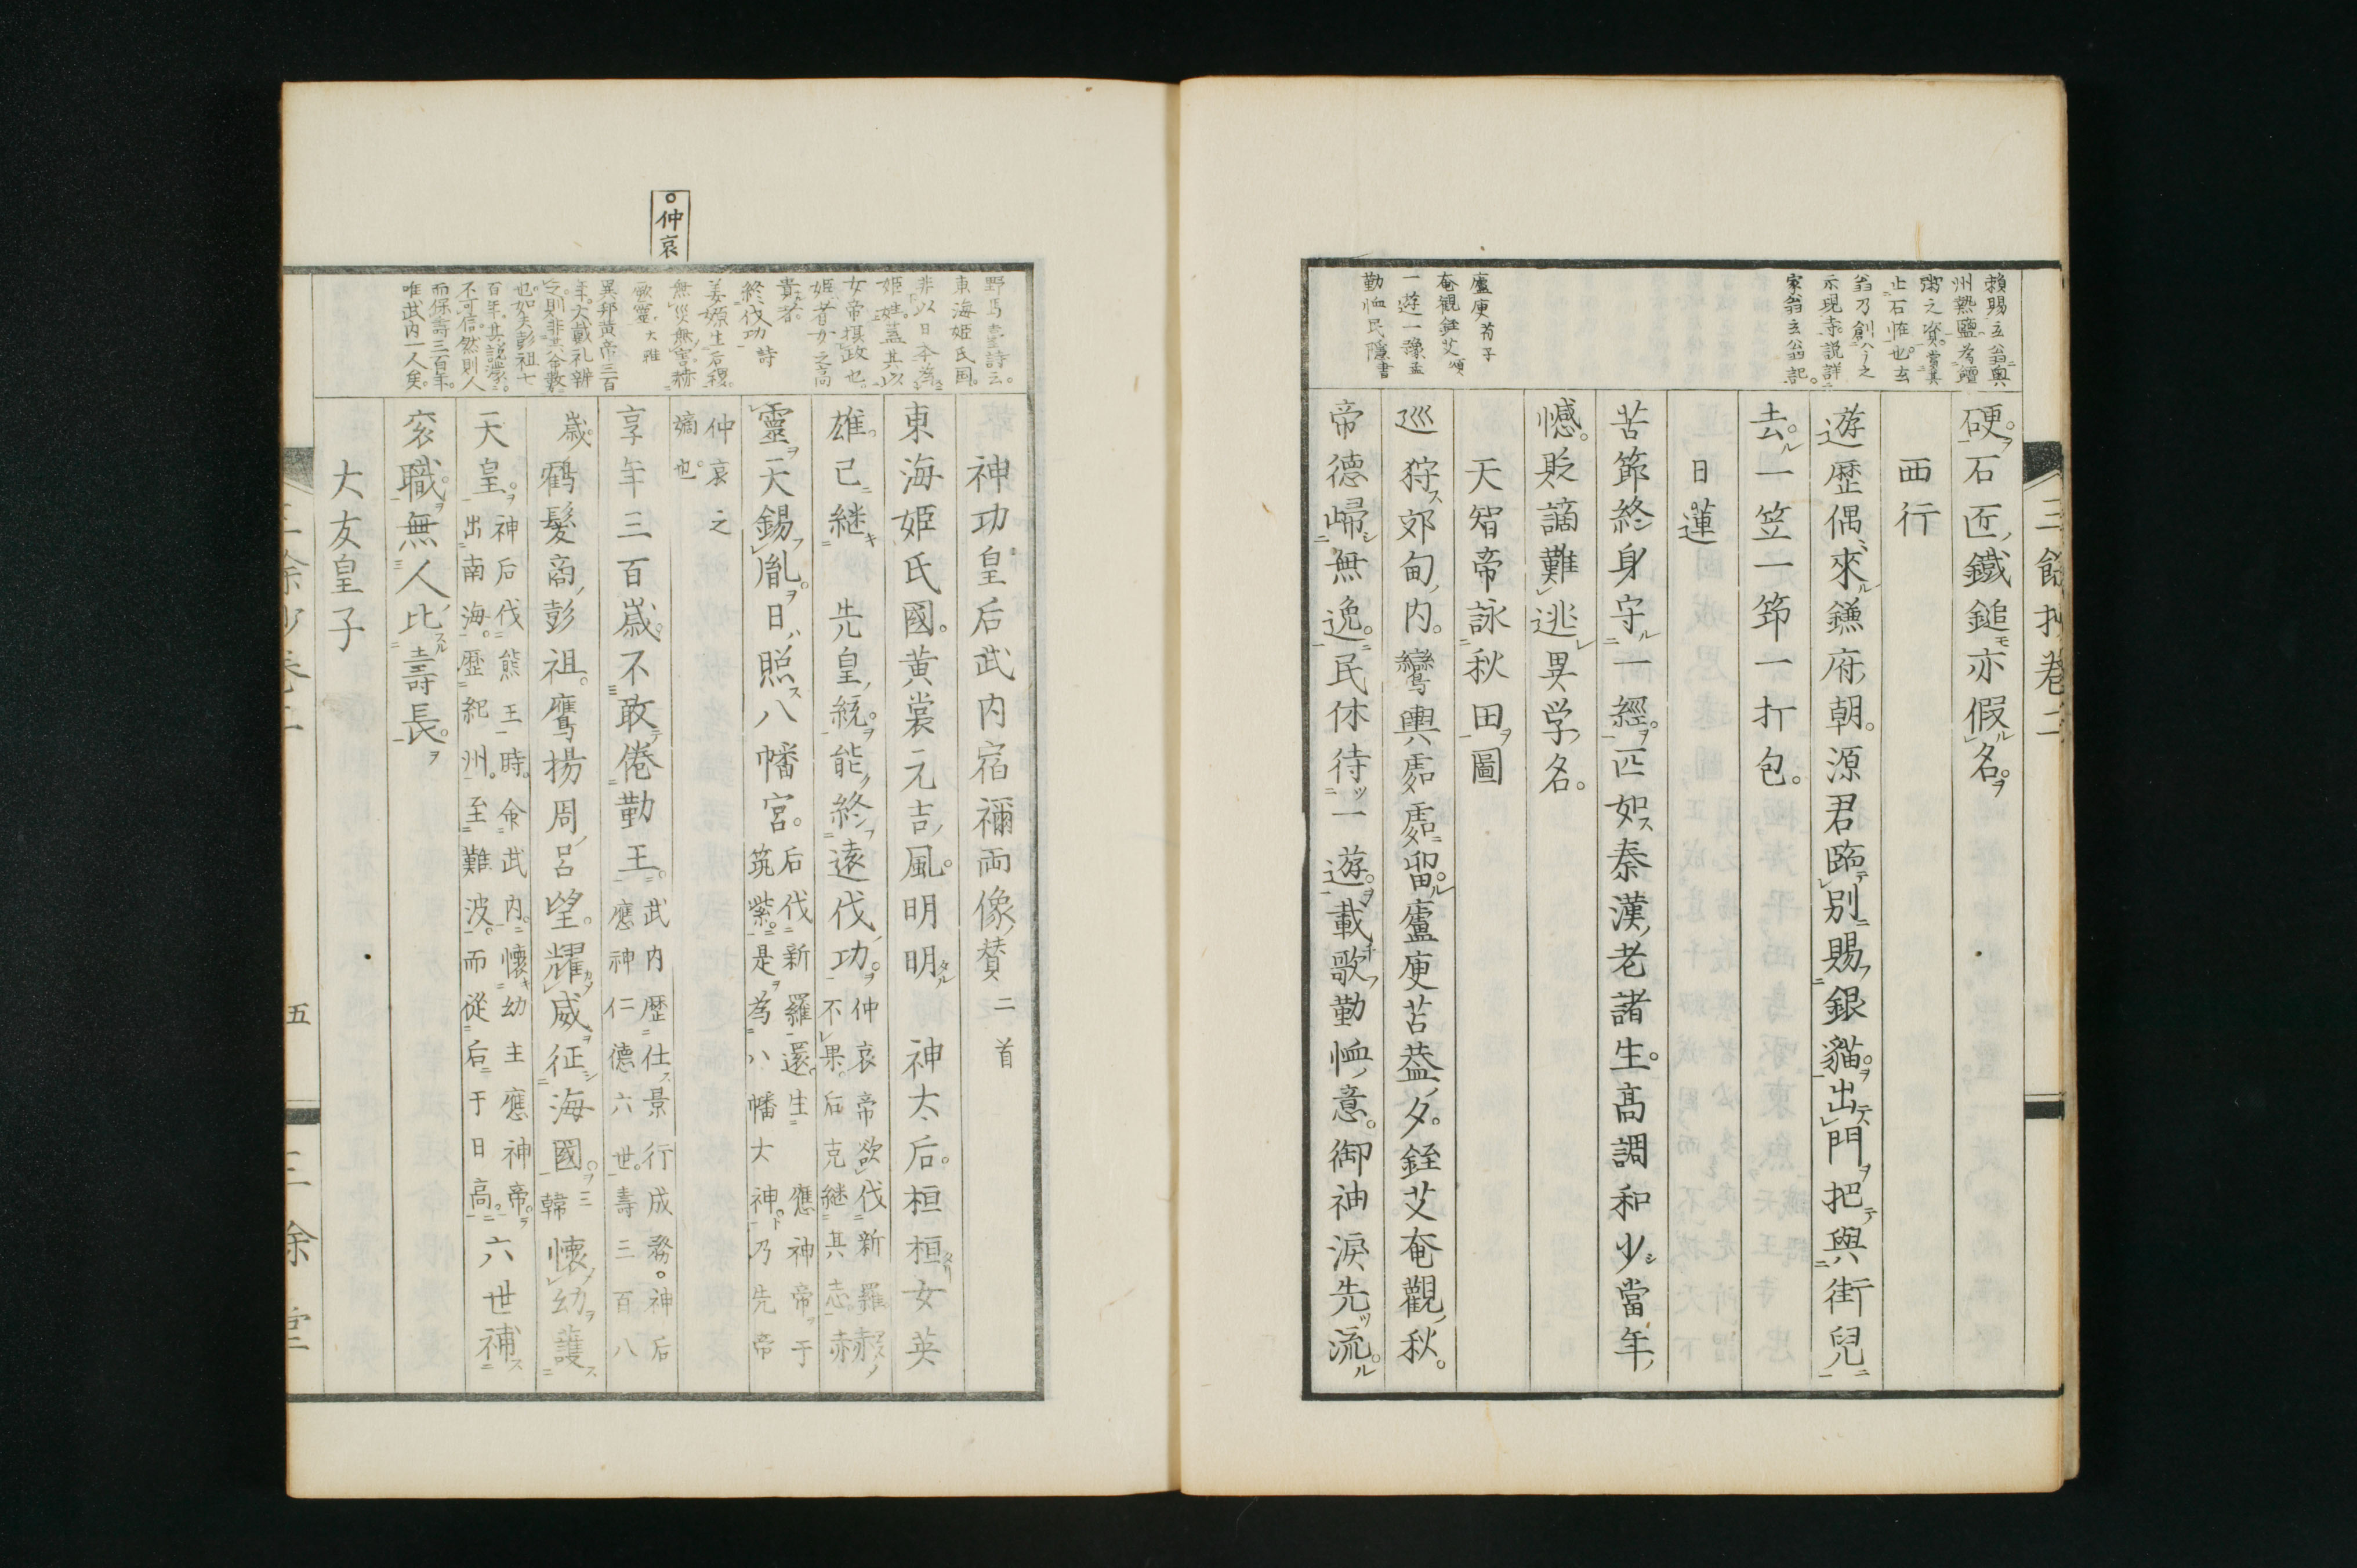 三餘抄卷二
硬石匠鐵鎚亦假名
西行
遊歷偶來鎌府朝源君臨別賜銀貓出門把與街兒
去一笠一笻一打包
日蓮
苦節終身守一經匹如秦漢老諸生高調和少當年
憾貶謫難逃異学名
天智帝詠秋田圖
巡狩郊甸内鸞輿處處留廬庾苫葢夕銍艾奄觀秋
帝德歸無逸民休待一遊載歌勤恤意御袖淚先流
賴賜玄翁與
州熱鹽為
粥之資賞其
止石恠也玄
翁乃創之
示現寺説詳
家翁玄翁記
廬庾荀子
奄觀銍艾頌
一遊一豫孟
勤恤民隱書
神功皇后武内宿禰両像賛二首
東海姫氏國黄裳元吉風明明神太后桓桓女英
雄已継先皇統能終遠伐功仲哀帝欲伐新羅不果后克継其志赫赫
靈天錫胤日照八幡宮后伐新羅還生應神帝于筑紫是為八幡大神乃先帝
仲哀之嫡也
享年三百歳不敢倦勤王武内歴仕景行成務神后應神仁德六世壽三百八
歳鶴髮商彭祖鷹揚周呂望耀威征海國三韓懐幼護
天皇神后伐熊王時命武内懐幼主應神帝出南海歴紀州至難波而從后于日高六世補
衮職無人比壽長
大友皇子
野馬臺詩云
東海姫氏国
非以日本為
姫姓蓋其以
女帝摂政也
姫者女之高
貴者
終伐功詩
姜嫄生后稷
無災無害赫
厥靈大雅
異邦黄帝三百
年大戴礼辨
之則非其命数
也如夫彭祖七
百年其説濛
不可信然則人
而保壽三百年
唯武内一人矣
仲哀
三餘抄卷二
五
三餘堂